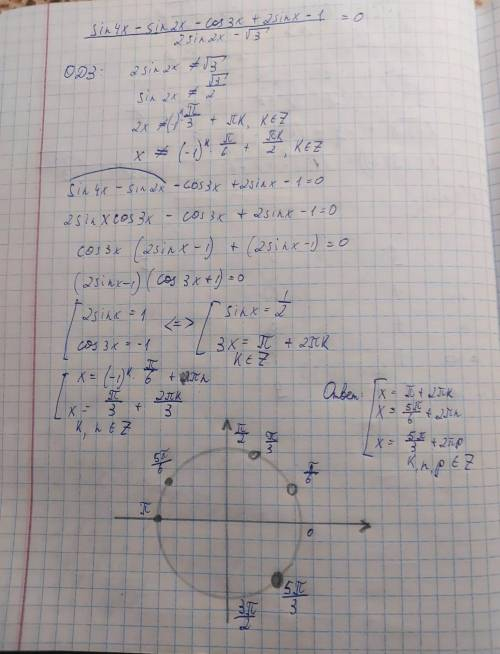 (sin4x - sin2x - cos3x + 2sinx - 1) / (2sin2x - √3) = 0
ОДЗ: 2sin2x ≠ √3
sin2x ≠ √3/2
2x ≠ (-1)^k π/3 + πk, k∈Z
x ≠ (-1)^k · π/6 + πk/2, k∈Z
sin4x - sin2x - cos3x + 2sinx - 1 = 0
2sinxcos3x - cos3x + 2sinx - 1 = 0
cos3x (2sinx - 1) + (2sinx - 1) = 0
(2sinx - 1)(cos3x + 1) = 0
[ 2sinx = 1
cos3x = -1
<=> [ sinx = 1/2
3x = π + 2πk
k∈Z
[ x = (-1)^k · π/6 + πn
x = π/3 + 2πk/3
k, n ∈ Z
Ответ: [ x = π + 2πk
x = 5π/6 + 2πn
x = 5π/3 + 2πp
k, n, p ∈ Z
π/2
π/3
5π/6
π/6
π
0
5π/3
3π/2